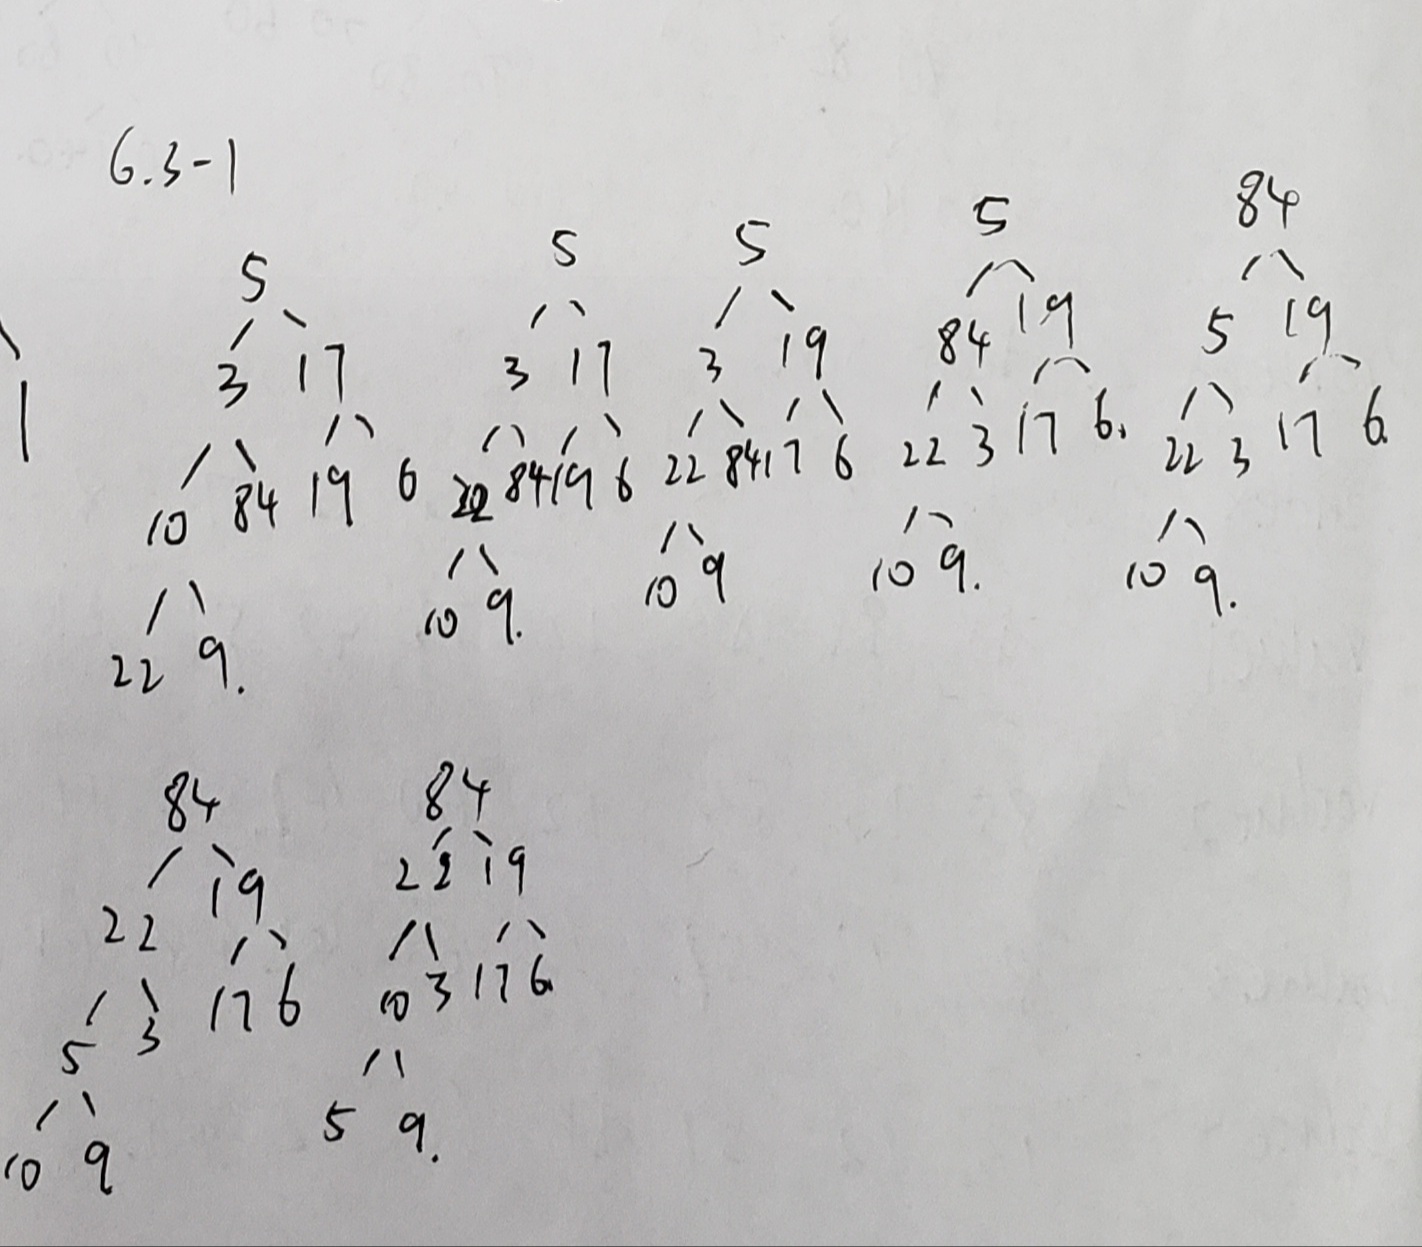 6.3-1
5
3 17
10 84 19 6
22 9.
5
3 17
22 84 19 6
10 9.
5
3 19
22 84 17 6
10 9
5
84 19
22 3 17 6.
10 9.
84
5 19
22 3 17 6.
10 9.
84
22 19
5 3 17 6
10 9
84
22 19
10 3 17 6.
5 9.